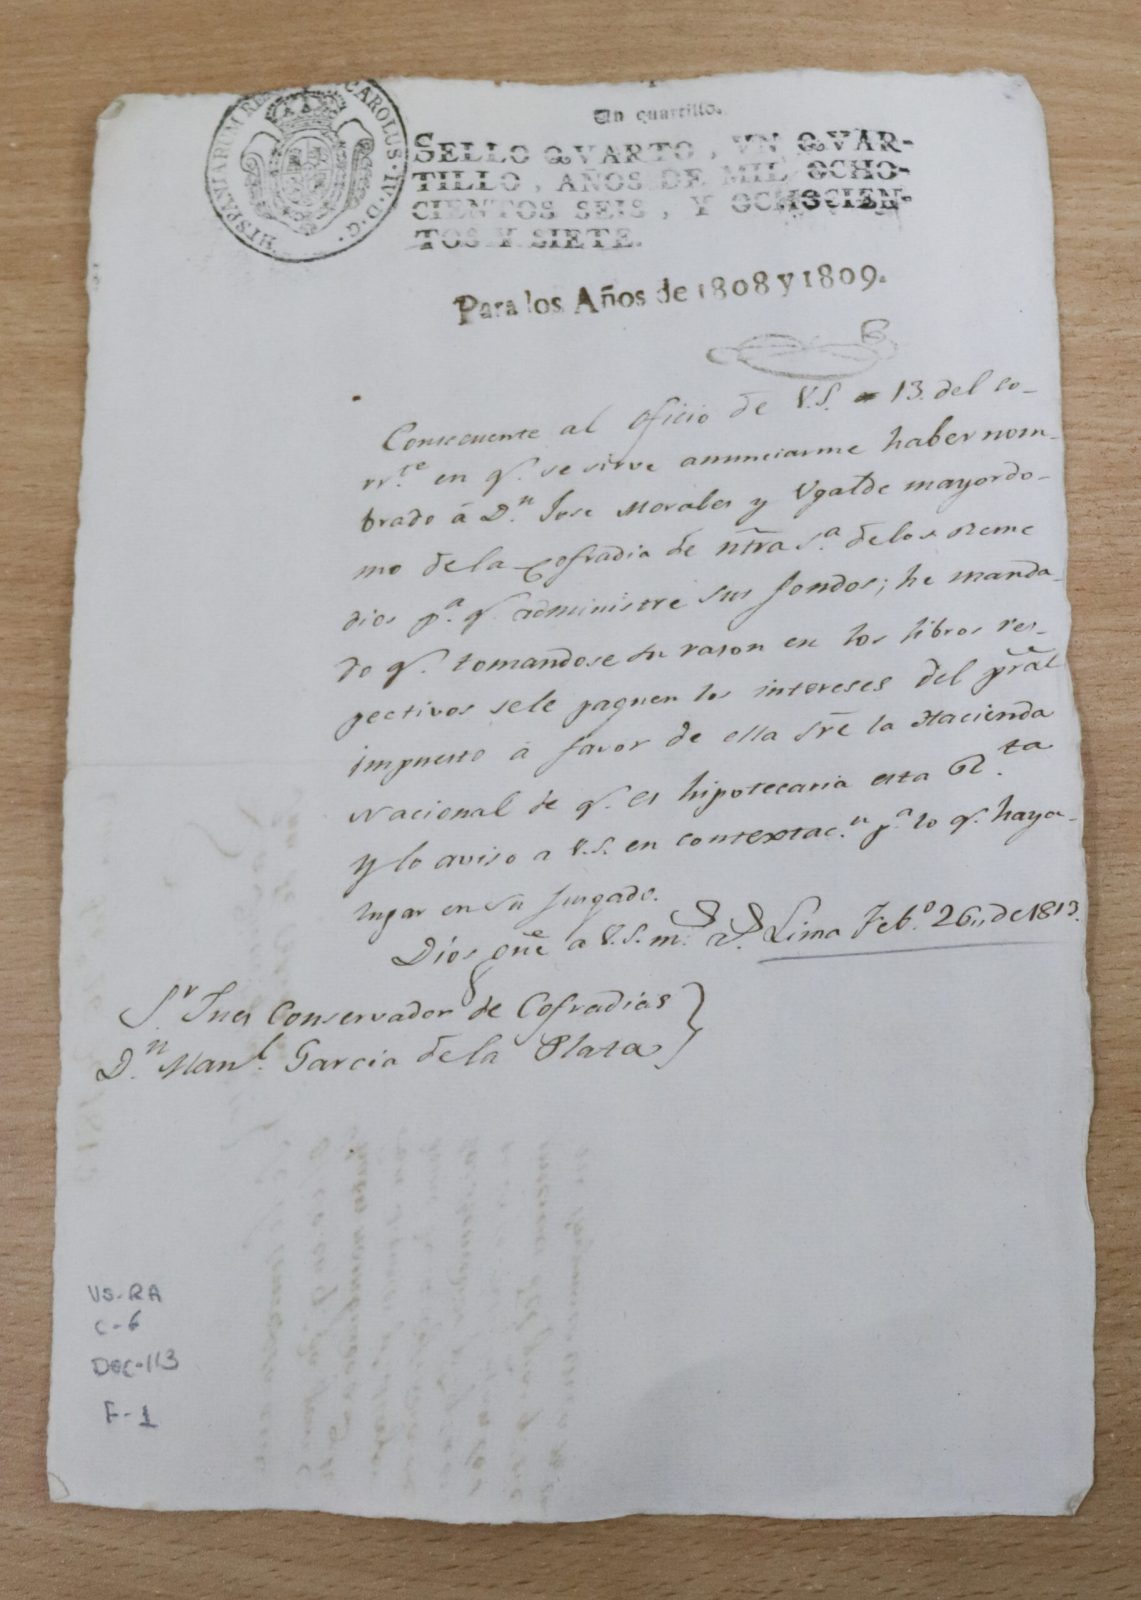 HISPANIARUM RE CAROLUS·IV·D·G·
Un quartillo.
SELLO QVARTO, VN QVAR-
TILLO, AÑOS DE MIL OCHO-
CIENTOS SEIS, Y OCHOCIEN-
TOS Y SIETE.
Para los Años de 1808 y 1809.
Consecuente al Oficio de V.S. 13. del co-
rr.te en q.e se sirve anunciarme haber nom-
brado á D.n Jose Morales y Ugalde mayordo-
mo de la Cofradia de ntra S.a de los Reme
dios p.a q.e administre sus fondos; he manda-
do q.e tomandose su razon en los libros res-
pectivos se le paguen los intereses del pral
impuesto á favor de ella sre la Hacienda
Nacional de q.e es hipotecaria esta R.ta
Y lo aviso a V.S. en contextac.n p.a lo q.e haya
lugar en su Juzgado.
Dios gue a V.S. m.s a.s Lima Feb.o 26,, de 1813.
S.r Juez Conservador de Cofradias
D.n Man.l Garcia de la Plata
VS-RA
C-6
DOC-113
F-1